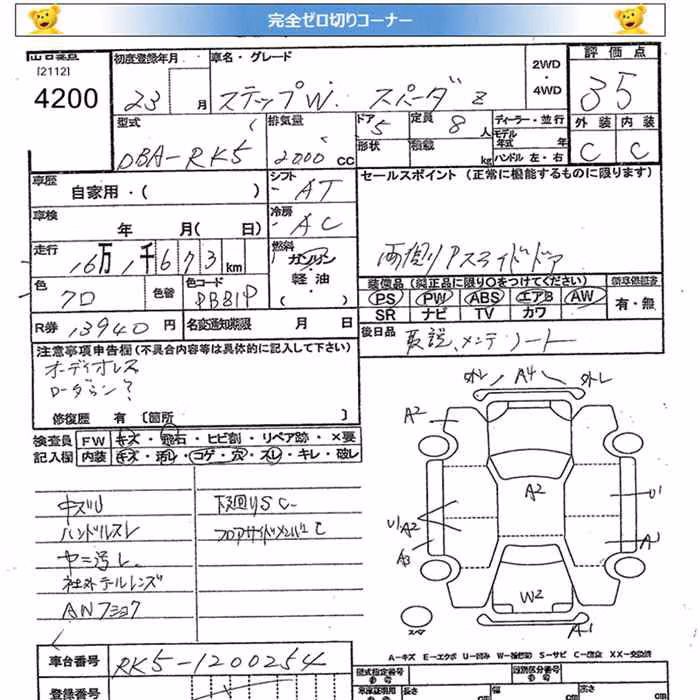 完全ゼロ切りコーナー
[2112]
4200
初度登録年月
23 月
車名・グレード
ステップW. スパーダ Z
2WD・4WD
評価点
35
型式
DBA-RK5
排気量
2000 CC
ドア 5
定員 8 人
形状
積載 kg
ディーラー・並行
モデル年式 年
ハンドル 左・右
外装 内装
C C
車歴
自家用・( )
シフト
AT
セールスポイント(正常に機能するものに限ります)
車検
年 月( 日)
冷房
AC
走行
16万1千673km
燃料
ガソリン・軽油・( )
両側Pスライドドア
色
クロ
色替
色コード
PB81P
装備品(純正品に限り○をつけてください)
PS PW ABS エアB AW
SR ナビ TV カワ
新車保証書
有・無
R券 13940 円
名変通知期限 月 日
後日品
取説、メンテノート
注意事項申告欄(不具合内容等は具体的に記入して下さい)
オーディオレス
ローダウン?
修復歴 有 [箇所 ]
検査員記入欄
FW キズ・飛石・ヒビ割・リペア跡・×要
内装 キズ・汚レ・コゲ・穴・スレ・キレ・破レ
中ズリ
ハンドルスレ
ヤニ汚レ
社外テールレンズ
下廻りSC
フロアサイドメンバーC
外レ A4 外レ
A2
A2
U1
U1 A2
A3
A1
W2
A1
スペア
A-キズ E-エクボ U-凹み W-補修跡 S-サビ C-腐食 XX-交換済
車台番号
RK5-1200254
登録番号
型式指定番号
類別区分番号
長さ cm
幅 cm
高さ cm